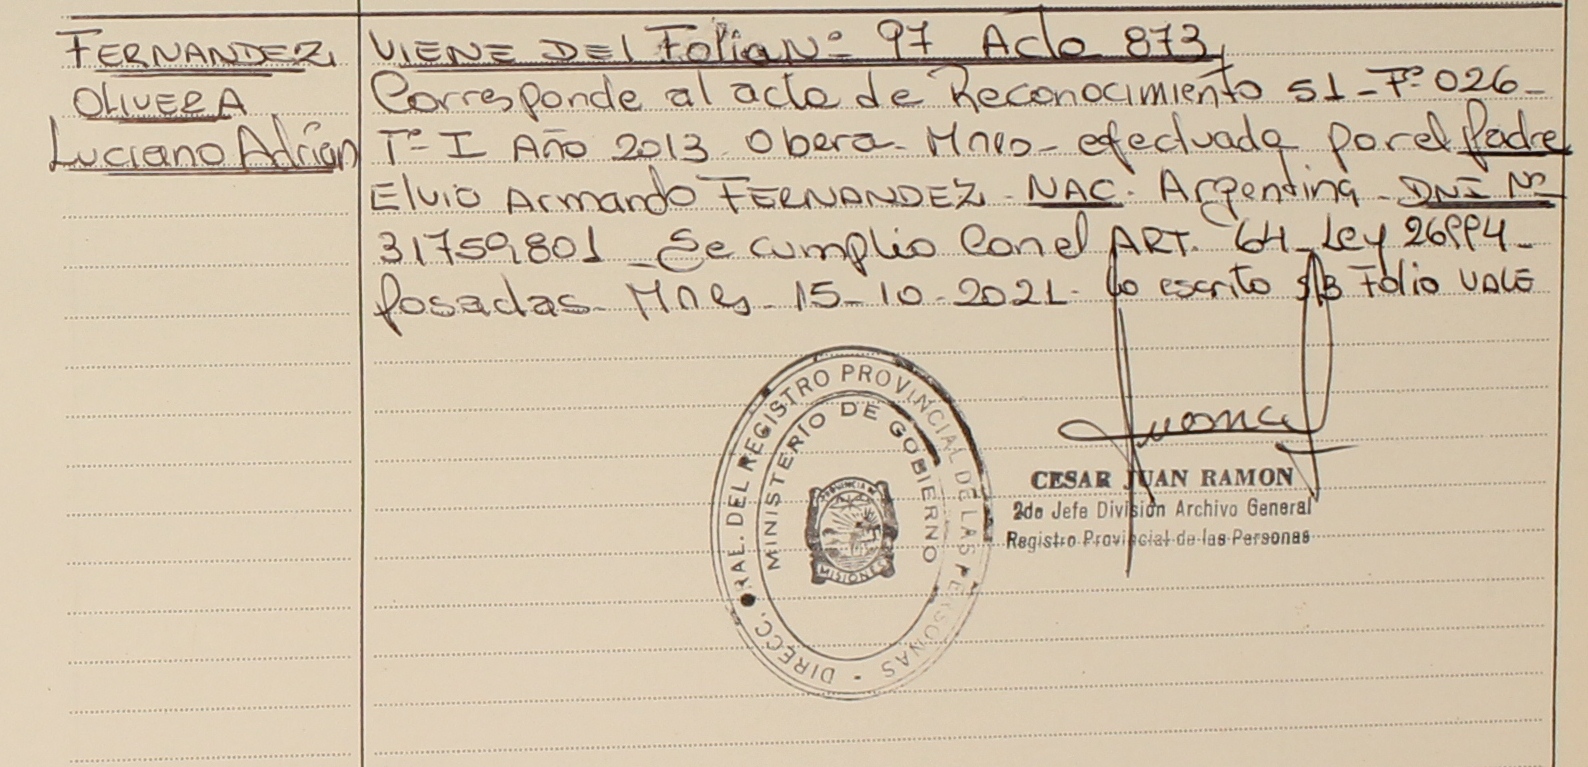 FERNANDEZ
OLIVERA
Luciano Adrián
VIENE DEL Folio Nº 97 Acta 873
Corresponde al acta de Reconocimiento 51 - Fº 026 -
Tº I Año 2013 Obera - Mnes - efectuada por el Padre
Elvio Armando FERNANDEZ - NAC. Argentina - DNI Nº
31759801 - Se cumplio Con el ART. 64 - Ley 26994 -
Posadas - Mnes - 15-10-2021 - Lo escrito S/B Folio VALE
DIRECC. GRAL. DEL REGISTRO PROVINCIAL DE LAS PERSONAS
MINISTERIO DE GOBIERNO
PROVINCIA DE
MISIONES
CESAR JUAN RAMON
2do Jefe División Archivo General
Registro Provincial de las Personas